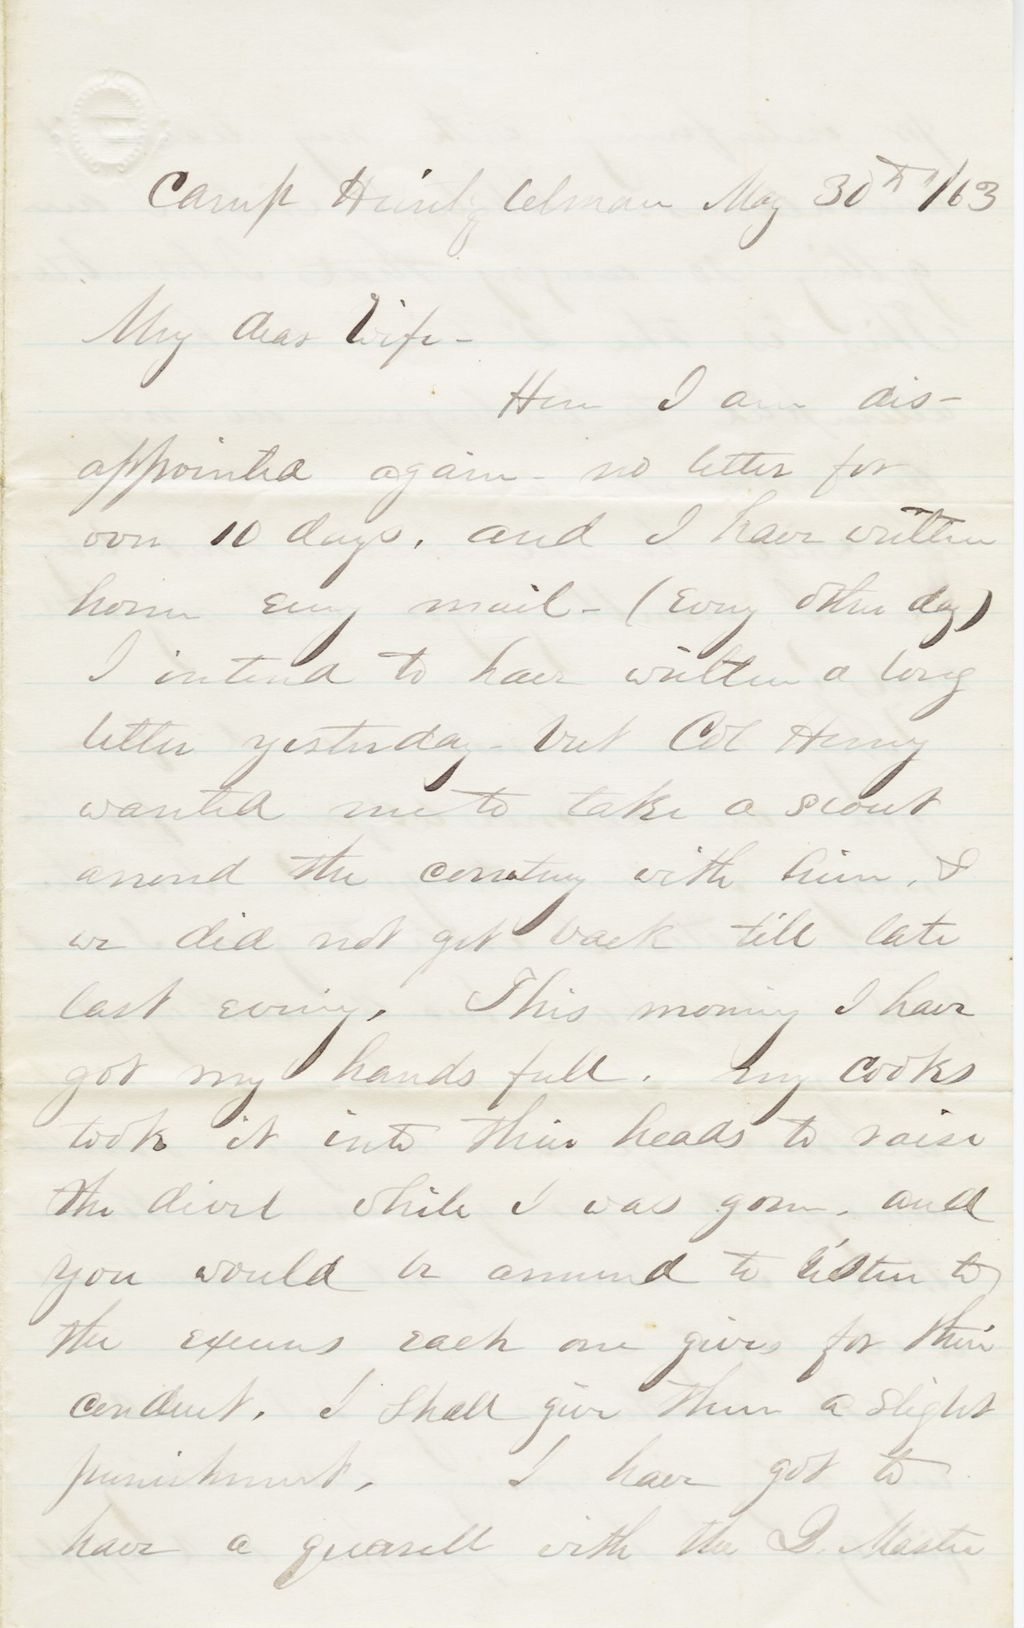 Camp Heintzelman May 30th /63
My dear Wife-
Here I am dis-
appointed again - no letter for
over 10 days, and I have written
home every mail - (Every other day)
I intend to have written a long
letter yesterday - but Col Henry
wanted me to take a scout
around the country with him, &
we did not get back till late
last evening, This morning I have
got my hands full. my cooks
took it into their heads to raise
the divel while I was gone, and
you would be amused to listen to
the excuses each one gives for their
conduct, I shall give them a slight
punishment, I have got to
have a quarell with the Q. Master